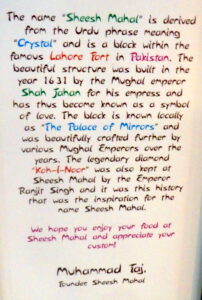 The name "Sheesh Mahal" is derived
from the Urdu phrase meaning
"Crystal" and is a block within the
famous Lahore Fort in Pakistan. The
beautiful structure was built in the
year 1631 by the Mughal emperor
Shah Jahan for his empress and
has thus become known as a symbol
of love. The block is known locally
as "The Palace of Mirrors" and
was beautifully crafted further by
various Mughal Emperors over the
years. The legendary diamond
"Koh-i-Noor" was also kept at
Sheesh Mahal by the Emperor
Ranjit Singh and it was this history
that was the inspiration for the
name Sheesh Mahal.
We hope you enjoy your food at
Sheesh Mahal and appreciate your
custom!
Muhammad Taj,
Founder Sheesh Mahal